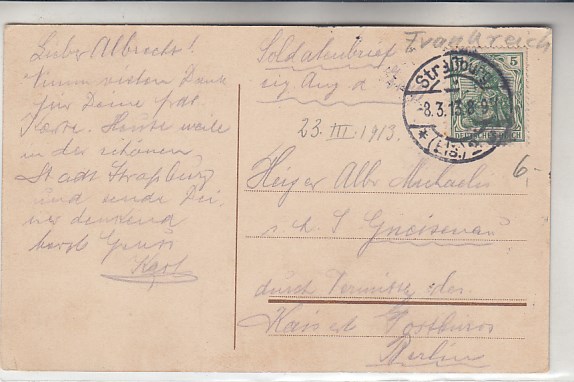 Lieber Albrecht!
Nimm vielen Dank
für Deine frdl.
Karte. Heute weile
in der schönen
Stadt Straßburg
und sende Dei-
ner denkend
herzl. Gruss
Karl
Frankreich
Soldatenbrief
eig. Ang. d.
5
Straßburg
-8.3.13.8-9
* (Els.) 2 *
DEUTSCHES REICH
23. III. 1913.
6,-
Heizer Albr. Michaelis
S. Gneisenau
durch Vermittlg. des
Kais. d. Postbüros
Berlin